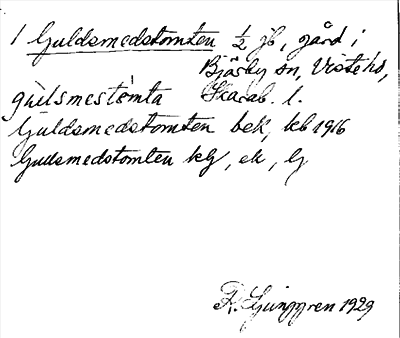 1 Guldsmedstomten ½ jb, gård i
Bjärby sn, Viste hd,
gu̇lsmestȯmta Skarab. l.
Guldsmedstomten bek, kb 1916
Guldsmedstomten kg, ek, lg
R. Ljunggren 1929